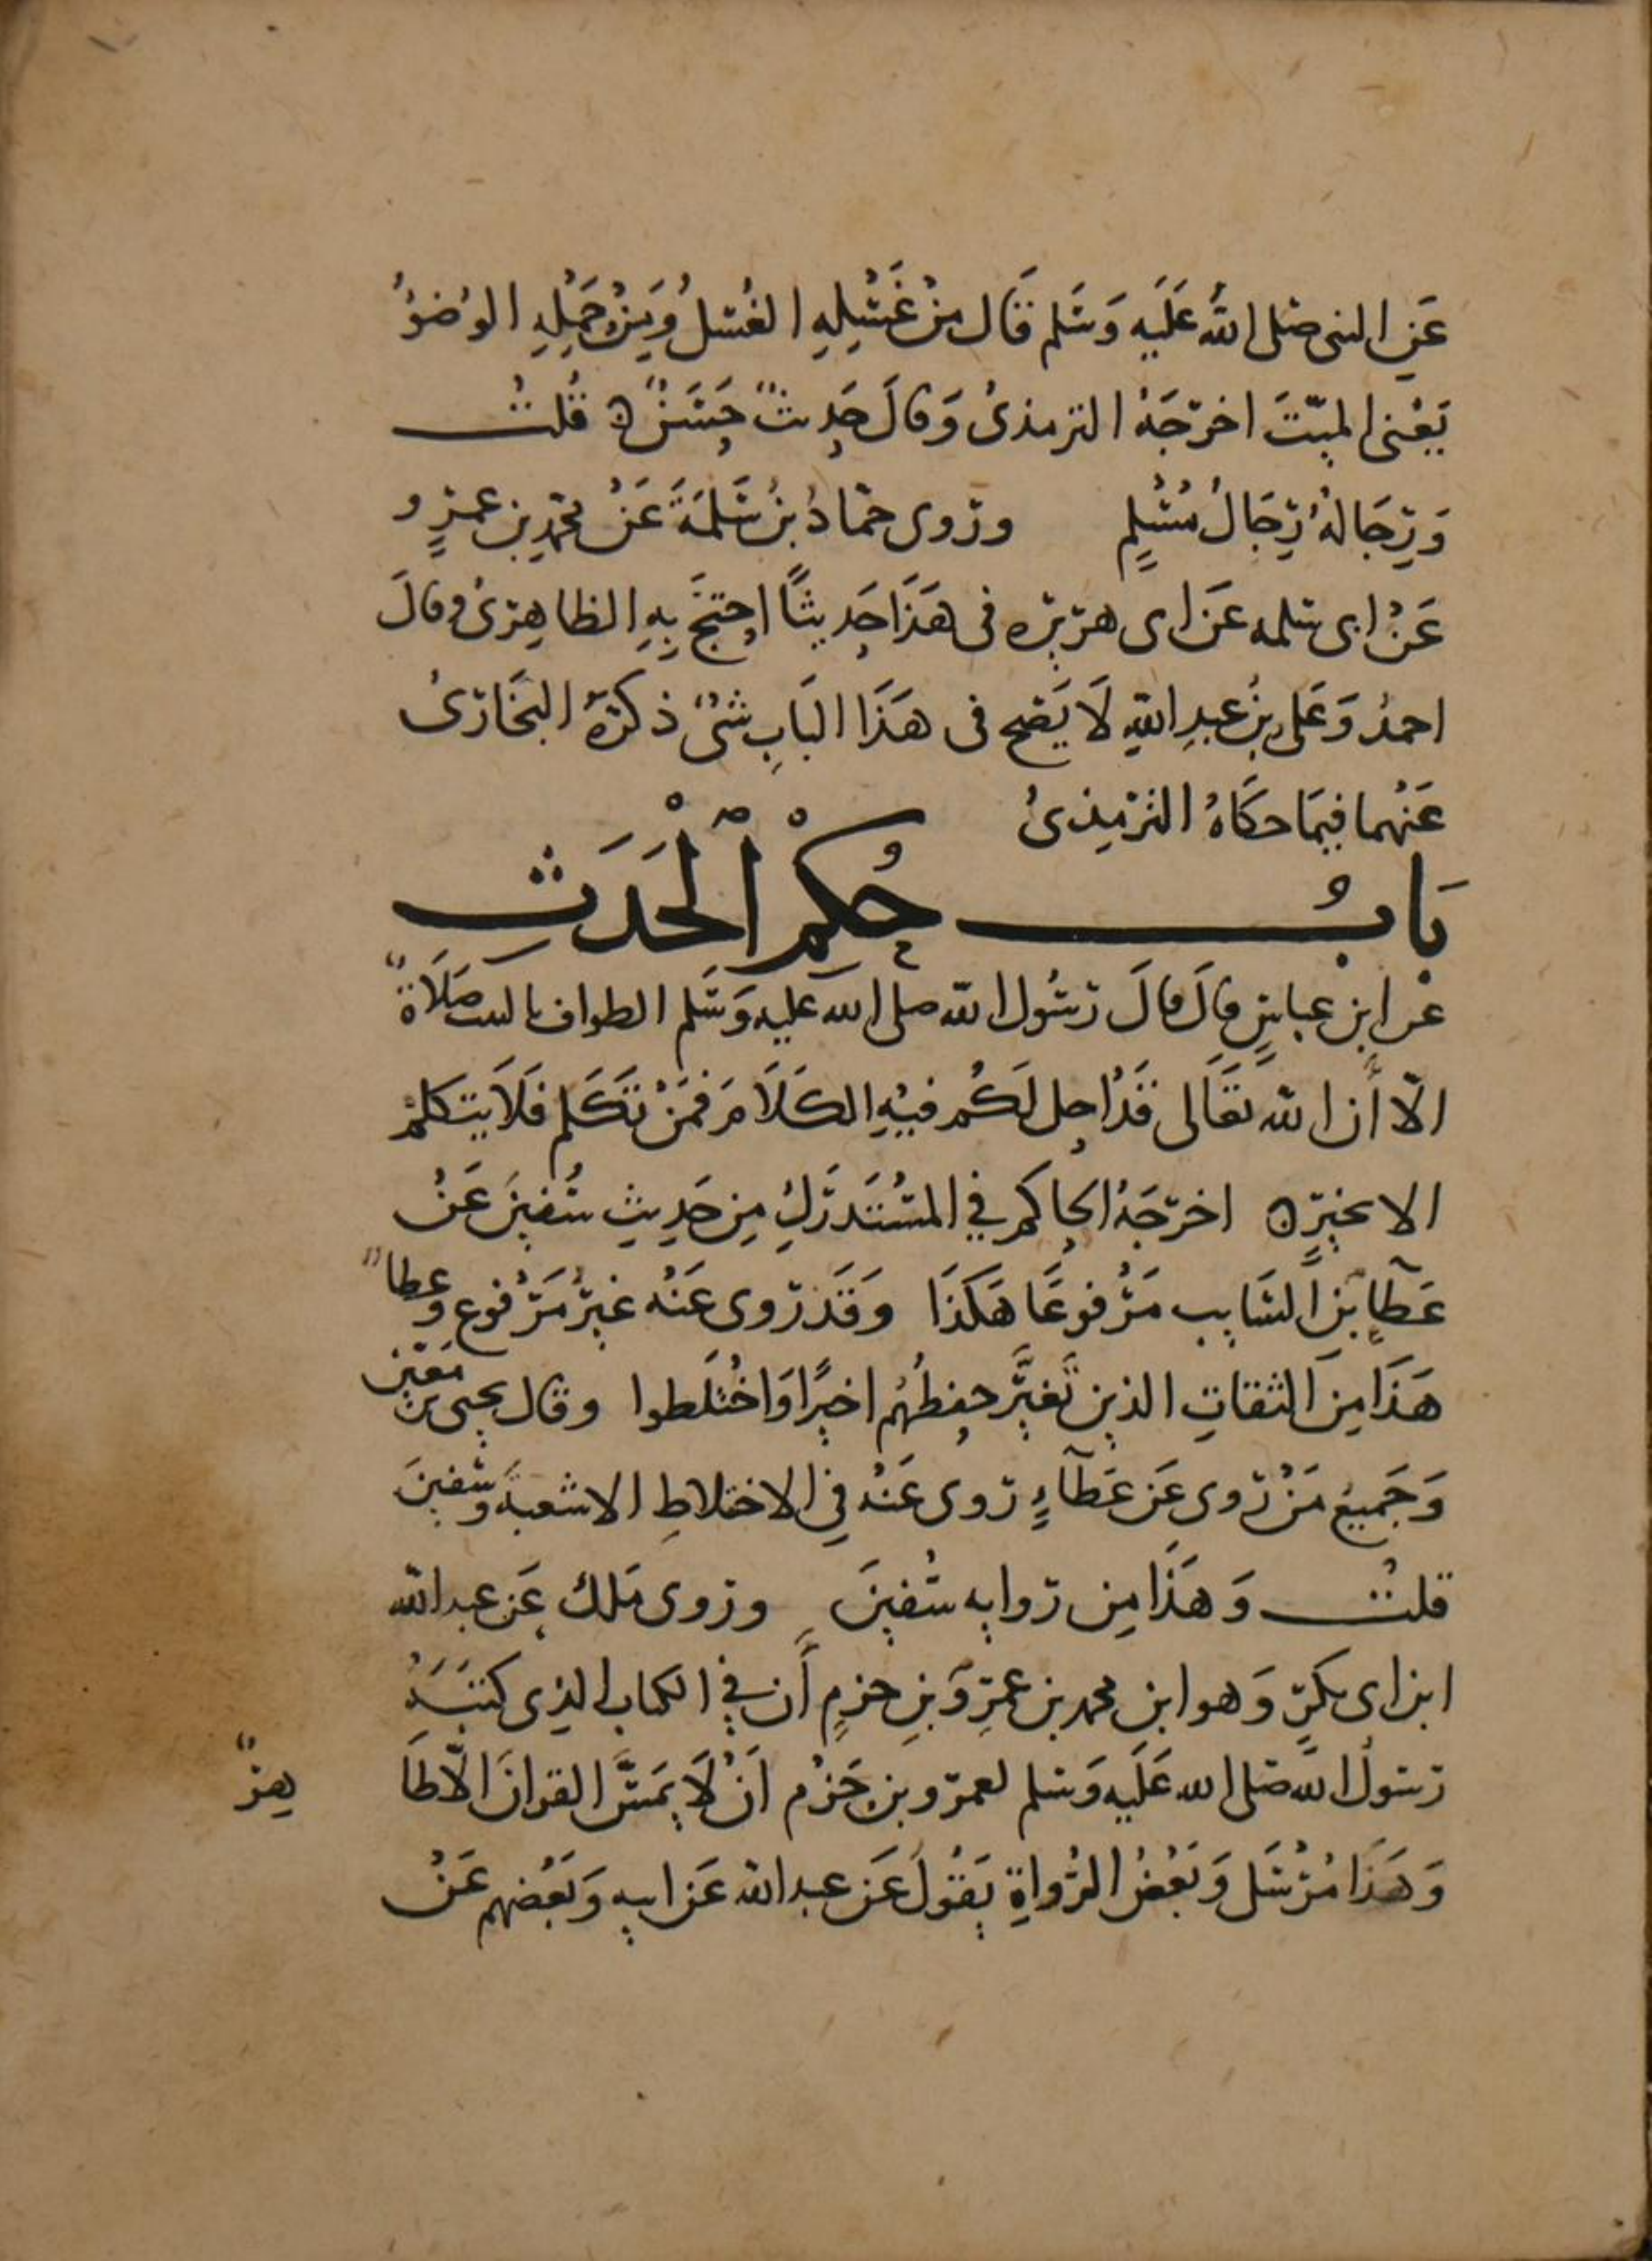 عَنِ النبي صلى اللهُ عَلَيه وَسَلم قَال مِنْ غَسْلِهِ الغُسْلُ وَمِنْ حَمْلِهِ الوُضوُ
يَعْنى الميّتَ اخرّجَهُ الترمذىُ وَقالَ حَدِيثٌ حَسَنٌ ه قُلتُ
وَرِجَالهُ رِجَالُ مُسْلِمٍ وروى حمّادُ بنُ سَلَمَةَ عَنْ محمّدِ بنِ عمرٍو
عَنْ ابى سلمه عَن ابى هريره فى هَذَا حَدِيثًا احتجَّ بِهِ الظاهِرىُ وقالَ
احمدُ وَعَلى بنُ عبدِ اللهِ لَا يَصح فى هَذَا البَابِ شىْءٌ ذكرَهُ البُخَارىُ
عَنْهما فيمَا حكَاهُ الترْمِذىُ
بَابُ حُكْمِ اْلْحَدَثِ
عن ابنِ عباسٍ قالَ قالَ رسُول اللّه صلى الله عليه وَسَلم الطواف بالبيت صَلَاةٌ
الّا أَن اللّه تعَالى قَدْ احل لَكُم فيْهِ الكَلَامَ فمَنْ تَكَلم فلَا يتكلمْ
الا بخيرٍ ه اخرّجَهُ الحاكم في المسْتَدرَكِ مِن حَدِيثِ سُفينَ عَنْ
عَطآءِ بنِ السَايبِ مَرْفوعًا هَكَذَا وَقَد رُوى عَنْه غيرُ مَرْفوعٍ وَعطاءٌ
هَذَا مِنَ الثقاتِ الذين تَغيَّر حِفظُهُم اخيرًا وَاخْتلَطوا وقال يحيى بنُ مَعينٍ
وَجَميعُ مَنْ رَوى عَن عَطَآءٍ رَوى عَنْه في الاختلاطِ الا شعبةَ وَسُفينَ
قلتُ وَهَذَا مِن روايه سُفينَ وروى مَلك عَن عبد اللّه
ابن ابى بكرٍ وَهو ابن محمد بن عمرِو بنِ حزمٍ أَن في الكتابِ الذِى كتَبَهُ
رسُولُ اللّه صَلى الله عَلَيه وَسَلم لعمرو بن حَزم اَنْ لَا يَمَسَّ القرانَ الّا طَا هِرٌ
وَهَذَا مُرْسَل وَبَعْضُ الرُواةِ يَقُولُ عَن عبد الله عَن ابيه وَبَعْضهم عَنْ